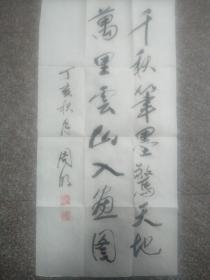 千秋筆墨驚天地
萬里雲山入畫圖
丁亥秋月 周明